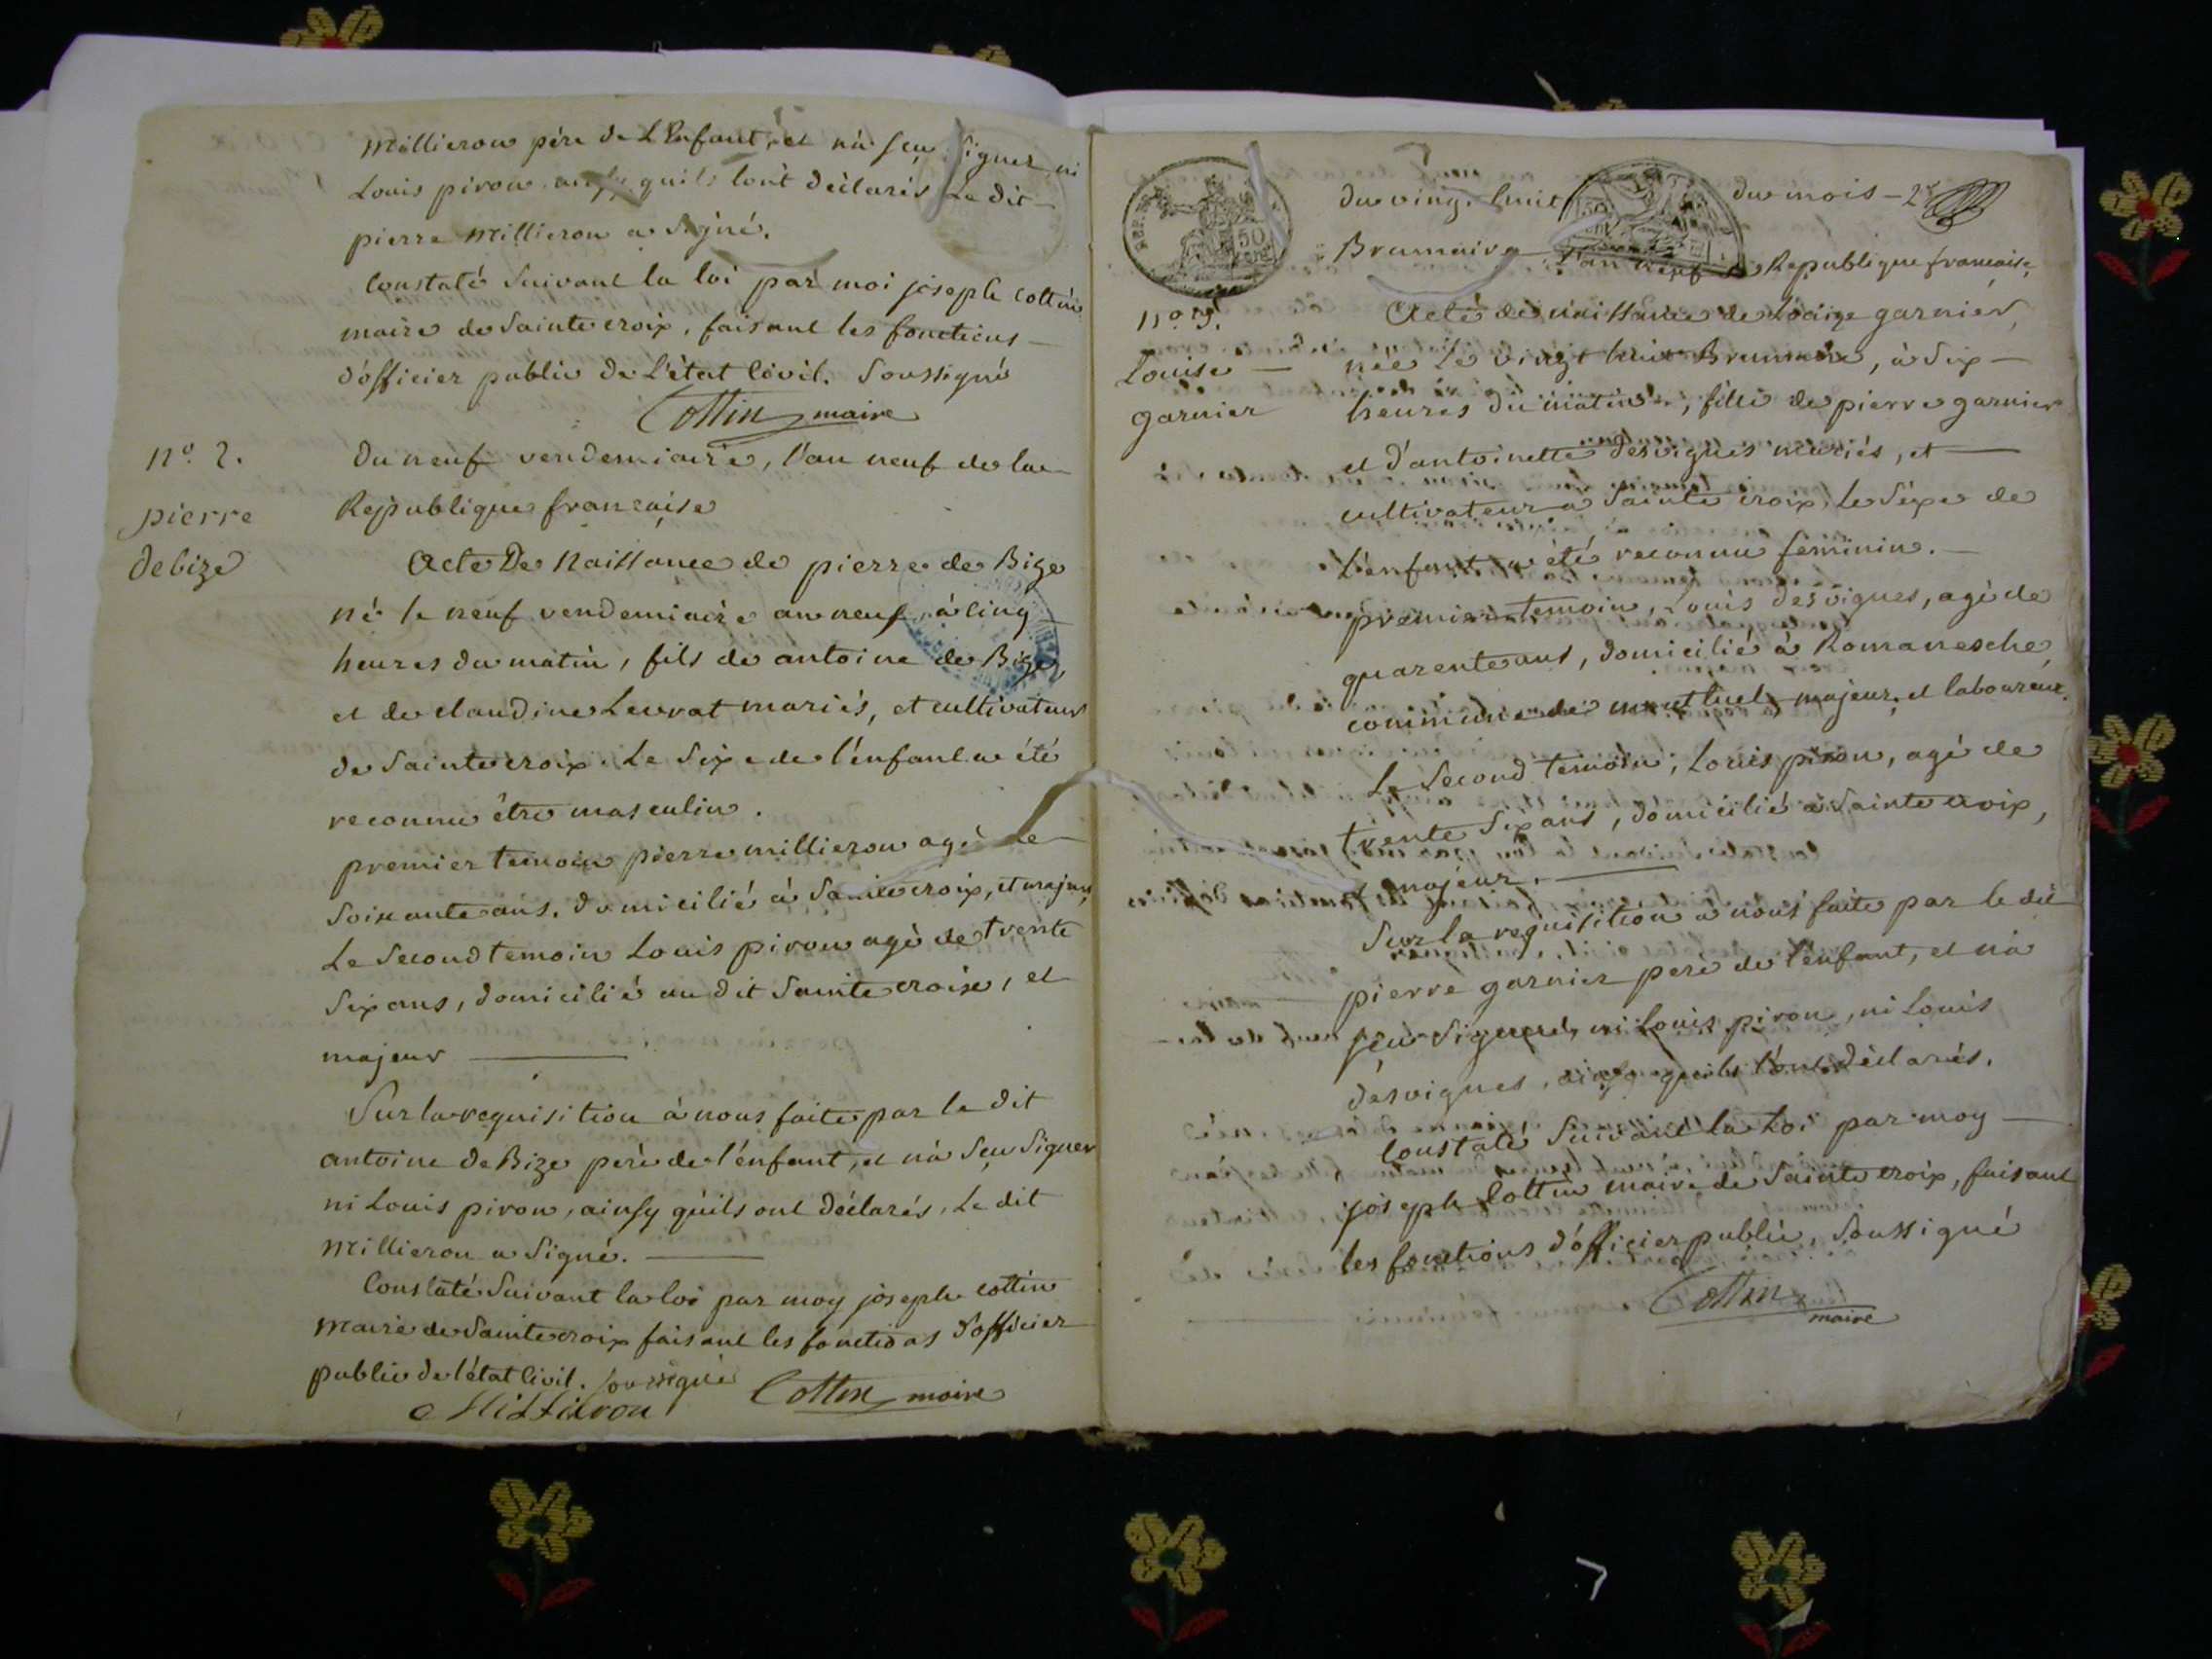 Millieron pére de L'Enfant, et n'à sçu signer ni
Louis piron, ainsy quils l'ont déclarés Le dit
pierre Millieron a Signé.
Constaté Suivant la loi par moi joseph Cottin
maire de Sainte croix, faisant les fonctions
d'officier public de L'état Civil. Soussigné
Cottin maire
n.o 2. du neuf vendemiaire, l'an neuf de la
pierre Republique francaise
debize Acte De Naissance de pierre de Bize
né le neuf vendemiaire an neuf, à cinq
heures du matin, fils de antoine de Bize,
et de claudine Levrat mariés, et cultivateurs
de Sainte croix. Le Sexe de l'énfant a été
reconnu être masculin.
premier temoin pierre millieron agé de
Soixante ans, domicilié à Sainte croix, et majeur,
Le Second temoin Louis piron agé de trente
Six ans, domicilié au dit Sainte croix, et
majeur
Sur la requisition à nous faite par le dit
antoine de Bize peré de l'énfant, et n'à Sçu Signer
ni Louis piron, ainsy qu'ils ont déclarés, Le dit
Millieron a Signé.
Constaté Suivant la loi par moy joseph cottin
Maire de Sainte croix faisant les fonctions d'officier
public de l'état Civil. soussigné Cottin maire
Millieron
REP. 50 CENT
du vingt huit du mois - 2e
Brumaire l'an neuf de Republique francaise,
n.o 3. Acte de naissance de Louise garnier,
Louise née Le vingt huit Brumaire, à Six
garnier heures du matin, fille de pierre garnier
et d'antoinette desvignes mariés, et
cultivateurs a Sainte croix, le Séxe de
L'énfant a été reconnu féminin.
premier temoin, Louis desvignes, agé de
quarente ans, domicilié à Romanesche,
commune de montluel, majeur, et laboureur.
Le Second temoin, Louis piron, agé de
trente Six ans, domicilié à Sainte croix,
et majeur.
Sur la requisition a nous faite par le dit
pierre garnier peré de l'énfant, et n'à
sçu Signer, ni Louis piron, ni Louis
désvignes, ainsy quils l'ont déclarés.
Constaté Suivant la Loi par moy
joseph Cottin maire de Sainte croix, faisant
les fonctions d'officier public, Soussigné
Cottin
maire